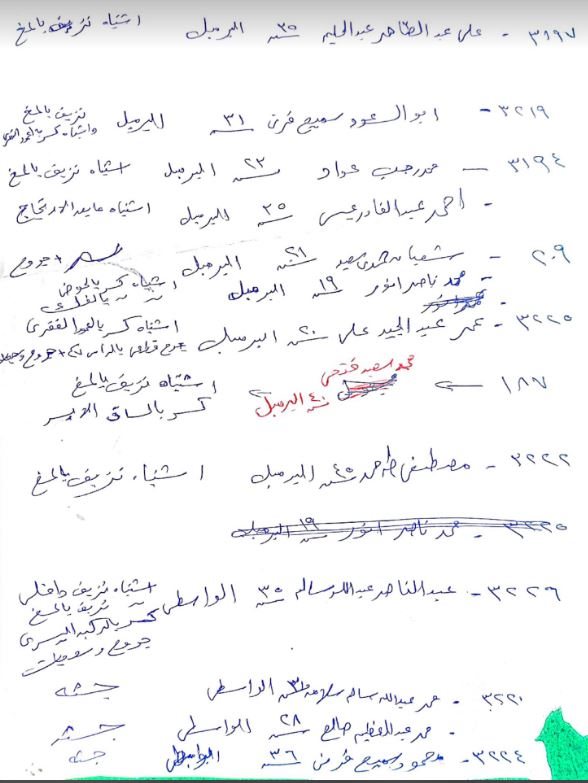 ٣١٩٧ - على عبد الظاهر عبد الحليم ٣٥ سنه البرمبل اشتباه نزيف بالمخ
٣٢١٩ - ابو السعود سميح قرنى ٣١ سنه البرمبل نزيف بالمخ
واشتباه كسر بالعمود الفقرى
٣١٩٤ - محمد رجب عواد ٢٣ سنه البرمبل اشتباه نزيف بالمخ
- احمد عبد القادر عيسى ٣٥ سنه البرمبل اشتباه مابعد الارتجاج
٢٠٩ - شعبان حمدى سعيد ٢١ سنه البرمبل كسر + جروح
- محمد ناصر انور ١٩ سنه البرمبل اشتباه كسر بالحوض
" " بالفك
٣٢٢٥ - عمر عبد المجيد على ٢٠ سنه البرمبل اشتباه كسر بالعمود الفقرى
جرح قطعى بالراس + جروح
١٨٧ محمد سعيد فتحى ٤٠ سنه البرمبل اشتباه نزيف بالمخ
كسر بالساق الايسر
٣٢٢٢ - مصطفى طه حمد ٤٥ سنه البرمبل اشتباه نزيف بالمخ
٣٢٢٥ - محمد ناصر انور ١٩ سنه البرمبل
٣٢٢٦ - عبد الناصر عبد الله سالم ٣٥ سنه الواسطى اشتباه نزيف داخلى
" نزيف بالمخ
كسر بالركبه اليسرى
جروح وسحجات
٣٢٢٠ - محمد عبدالله سالم سلامه الواسطى جثه
- محمد عبد العظيم صالح ٢٨ سنه الواسطى جثه
٣٢٢٤ - محمود سميح قرنى ٣٦ سنه الواسطى جثه